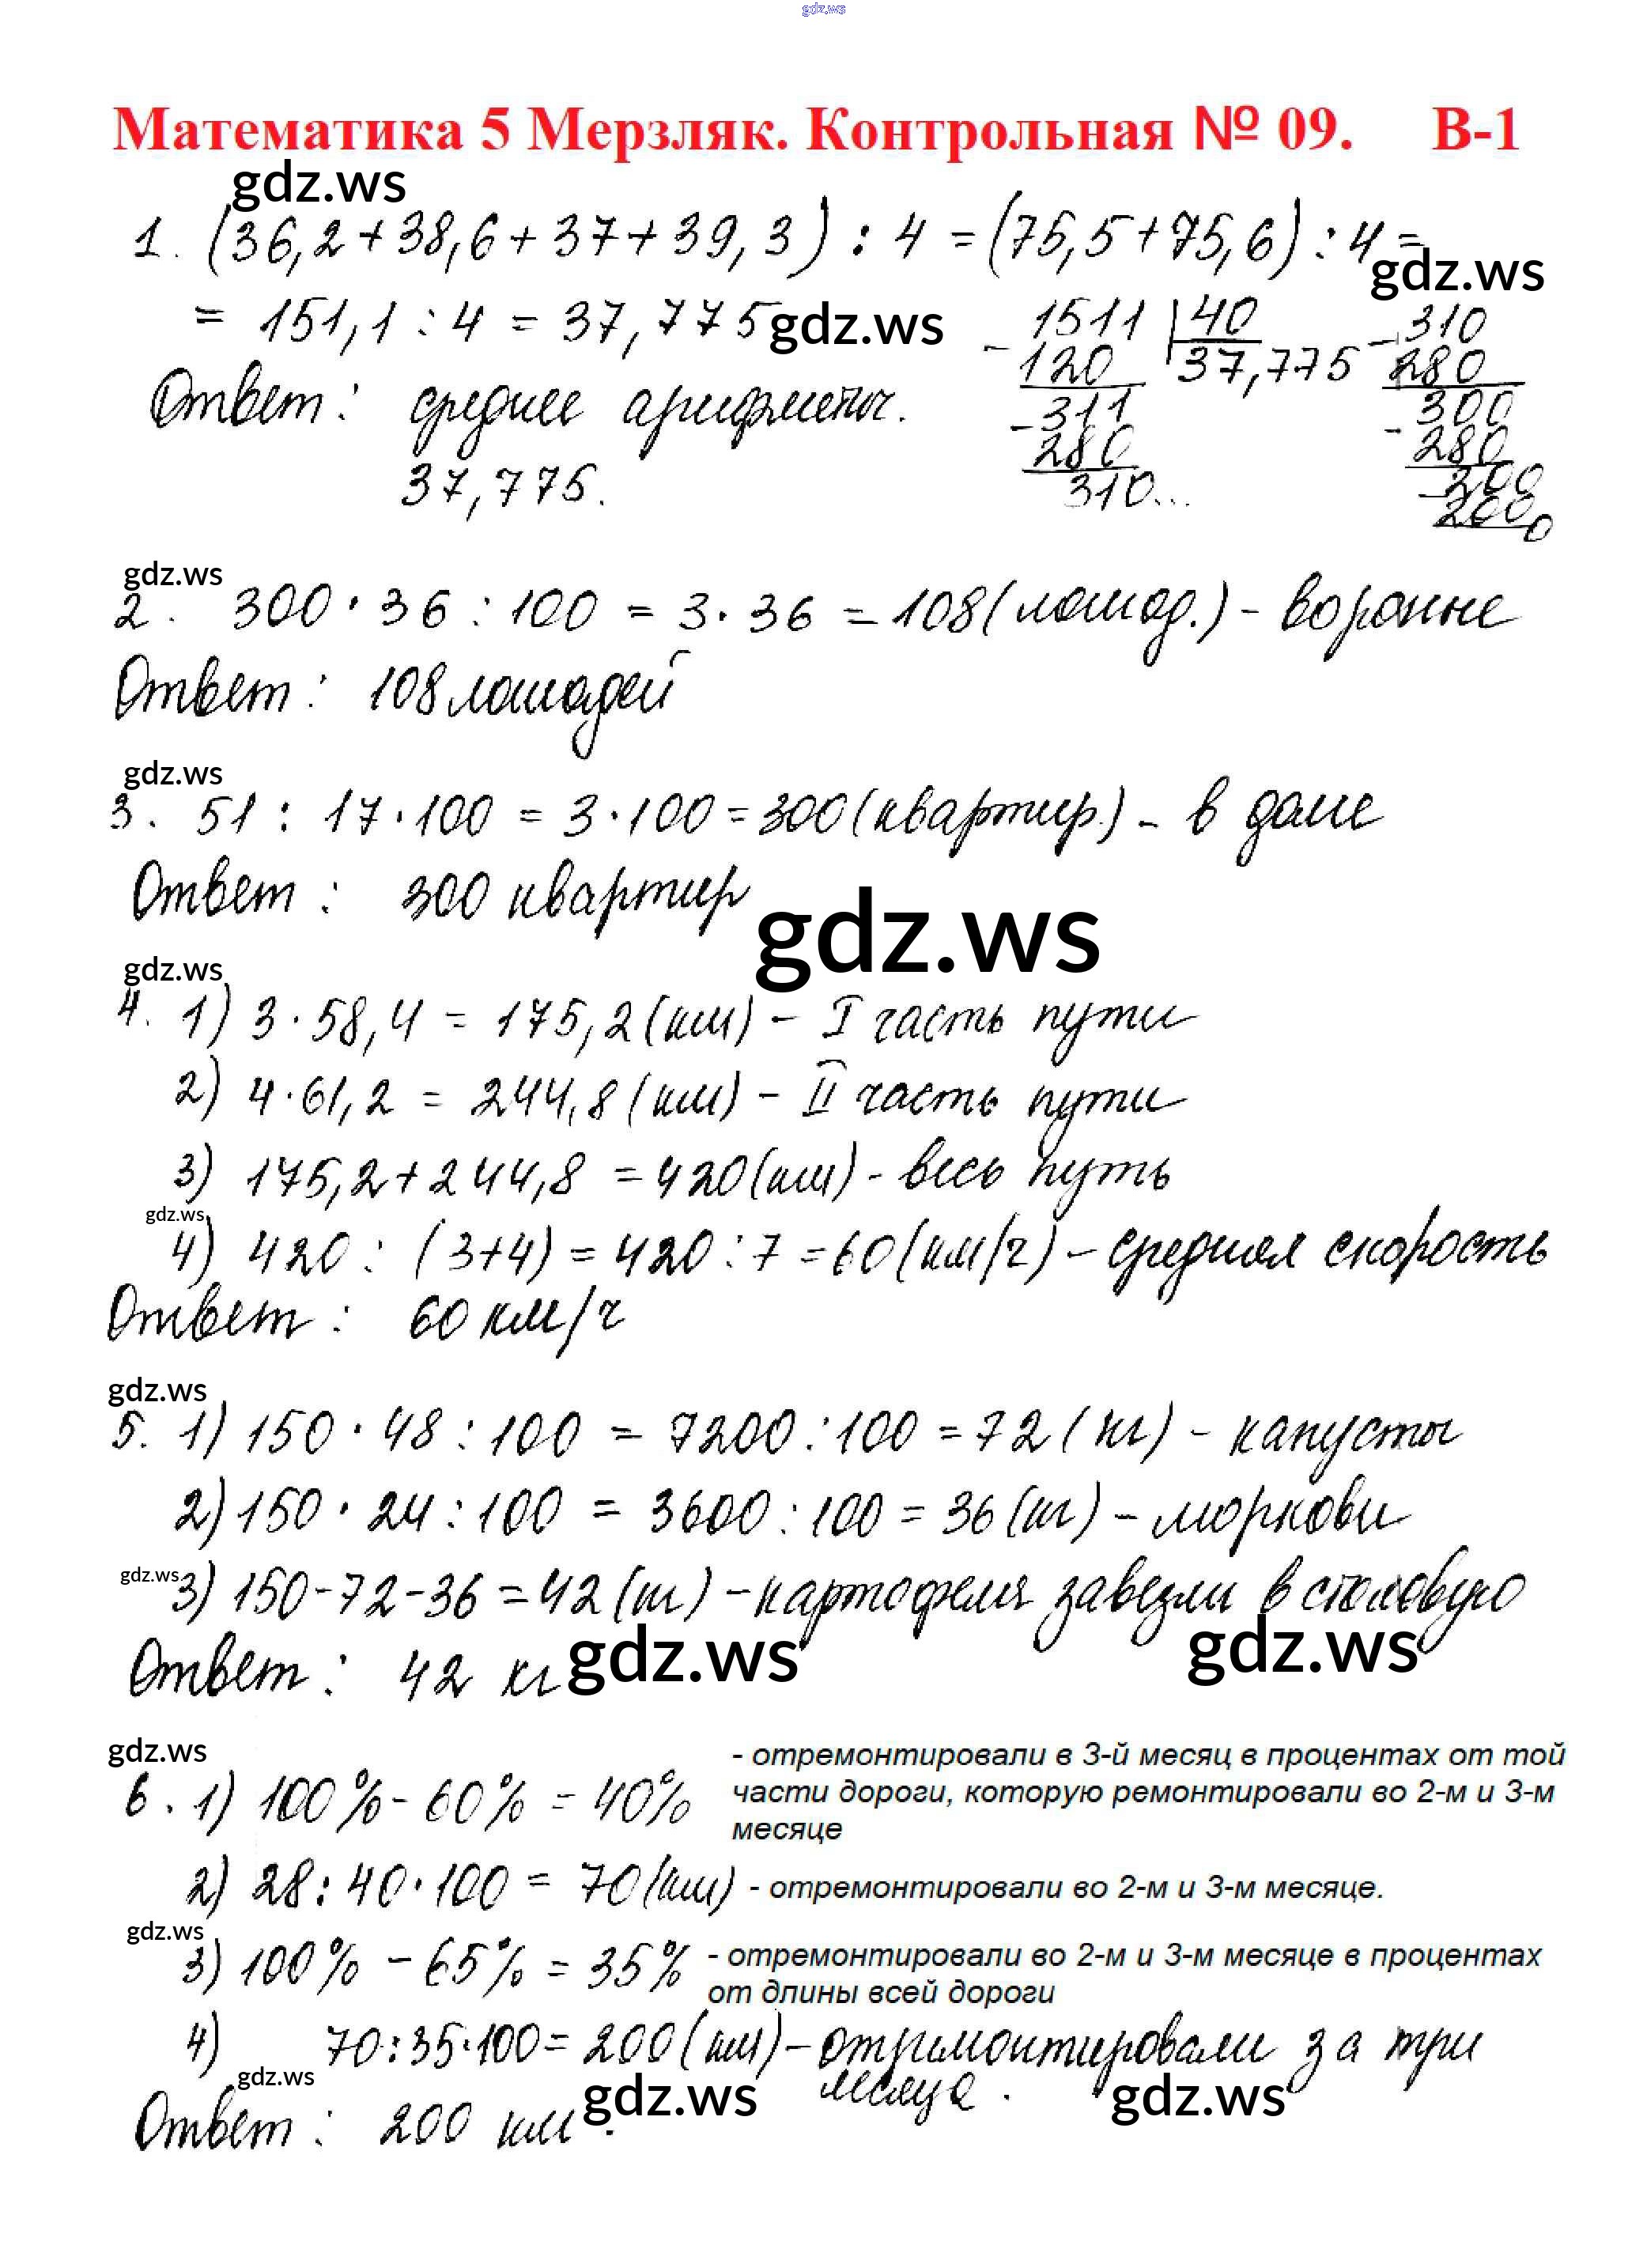 gdz.ws
Математика 5 Мерзляк. Контрольная № 09. В-1
gdz.ws
1. (36,2+38,6+37+39,3) : 4 = (75,5+75,6) : 4 =
gdz.ws
= 151,1 : 4 = 37,775 gdz.ws
- 1511 | 40
120 37,775
- 311
280
310...
- 310
280
- 300
280
- 200
200
0
Ответ: среднее арифметич.
37,775.
gdz.ws
2. 300 · 36 : 100 = 3 · 36 = 108 (лошад.) - вороние
Ответ: 108 лошадей
gdz.ws
3. 51 : 17 · 100 = 3 · 100 = 300 (квартир.) - в доме
Ответ: 300 квартир
gdz.ws
gdz.ws
4. 1) 3 · 58,4 = 175,2 (км) - I часть пути
2) 4 · 61,2 = 244,8 (км) - II часть пути
3) 175,2 + 244,8 = 420 (км) - весь путь
gdz.ws
4) 420 : (3+4) = 420 : 7 = 60 (км/ч) - средняя скорость
Ответ: 60 км/ч
gdz.ws
5. 1) 150 · 48 : 100 = 7200 : 100 = 72 (кг) - капусты
2) 150 · 24 : 100 = 3600 : 100 = 36 (кг) - моркови
gdz.ws
3) 150 - 72 - 36 = 42 (кг) - картофеля завезли в столовую
Ответ: 42 кг gdz.ws gdz.ws
gdz.ws
6. 1) 100% - 60% = 40%
- отремонтировали в 3-й месяц в процентах от той
части дороги, которую ремонтировали во 2-м и 3-м
месяце
2) 28 : 40 · 100 = 70 (км) - отремонтировали во 2-м и 3-м месяце.
gdz.ws
3) 100% - 65% = 35%
- отремонтировали во 2-м и 3-м месяце в процентах
от длины всей дороги
4) 70 : 35 · 100 = 200 (км) - отримонтировали за три
месяца.
gdz.ws
gdz.ws gdz.ws
Ответ: 200 км.